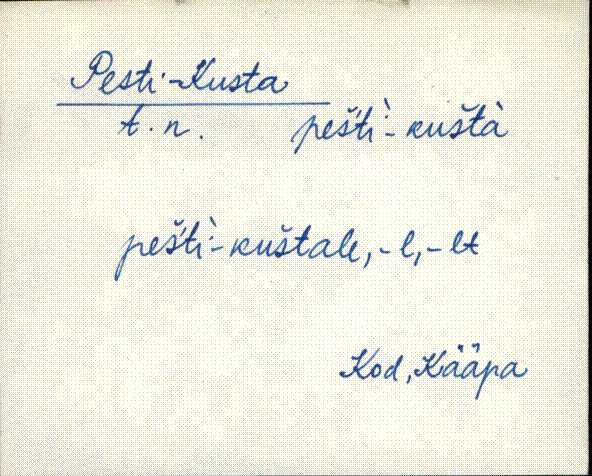 Pesti-Kusta
t.n. peštì̬-kuštà
peštì̬-kuštale, -l, -lt
Kod, Kääpa